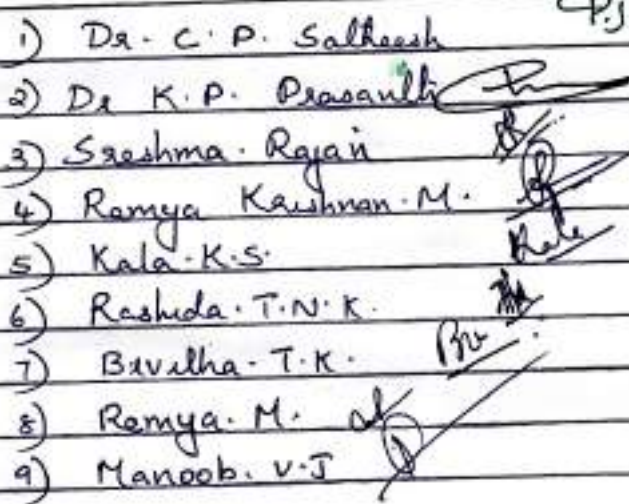 1) Dr. C. P. Satheesh
2) Dr K. P. Prasanth
3) Sreshma. Rajan
4) Ramya Krishnan. M.
5) Kala. K.S.
6) Rashida. T.N.K.
7) Bivitha. T.K.
8) Ramya. M.
9) Manoob. V.J